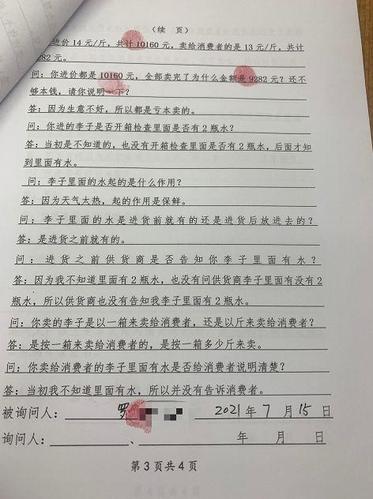 （续 页）
进价 14 元/斤，共计 10160 元，卖给消费者的是 13 元/斤，共计
282 元。
问：你进价都是 10160 元，全部卖完了为什么金额是 9282 元？还不
够本钱，请你说明一下？
答：因为生意不好，所以都是亏本卖的。
问：你进的李子是否开箱检查里面是否有 2 瓶水？
答：当初是不知道的，也没有开箱检查里面是否有 2 瓶水，后面才知
到里面有水。
问：李子里面的水起的是什么作用？
答：因为天气太热，起的作用是保鲜。
问：李子里面的水是进货前就有的还是进货后放进去的？
答：是进货之前就有的。
问：进货之前供货商是否告知你李子里面有水？
答：因为我不知道里面有 2 瓶水，也没有问供货商李子里面有没有 2
瓶水，所以供货商也没有告知我李子里面有 2 瓶水。
问：你卖的李子是以一箱来卖给消费者，还是以斤来卖给消费者？
答：是按一箱来卖给消费者的，是按一箱多少斤来卖。
问：你卖给消费者的李子里面有水是否给消费者说明清楚？
答：当初我不知道里面有水，所以并没有告诉消费者。
被询问人： 罗 2021 年 7 月 15 日
询问人： 、 年 月 日
第 3 页共 4 页